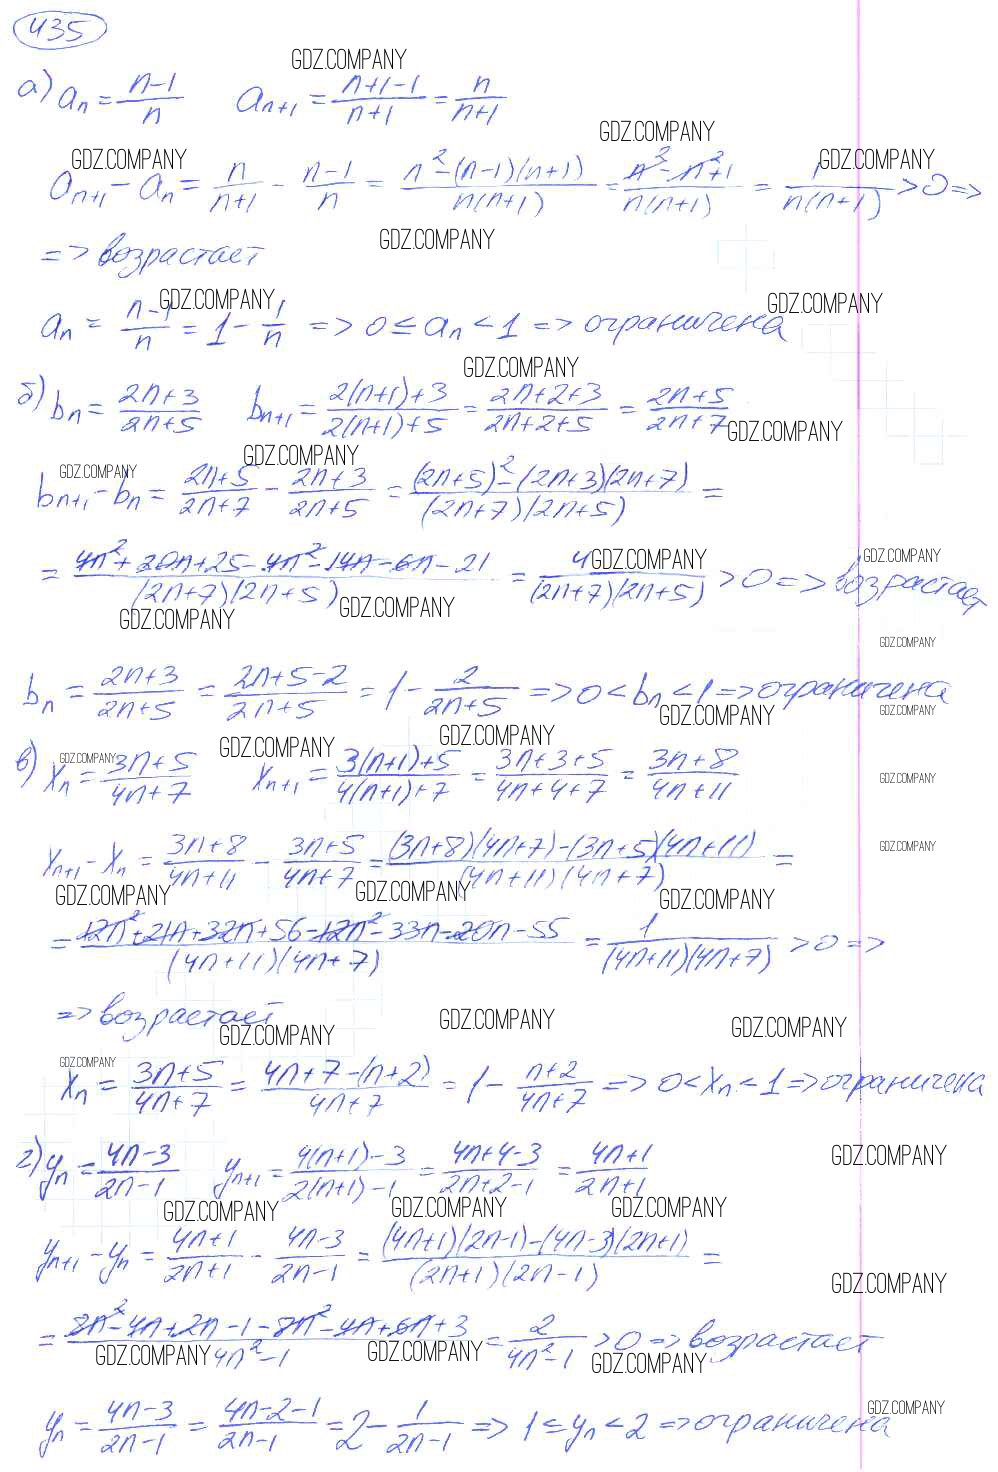 435
GDZ.COMPANY
а) aₙ = (n-1)/n   aₙ₊₁ = (n+1-1)/(n+1) = n/(n+1)
GDZ.COMPANY
GDZ.COMPANY GDZ.COMPANY
aₙ₊₁ - aₙ = n/(n+1) - (n-1)/n = (n²-(n-1)(n+1))/(n(n+1)) = (n²-n²+1)/(n(n+1)) = 1/(n(n+1)) > 0 =>
GDZ.COMPANY
=> возрастает
GDZ.COMPANY GDZ.COMPANY
aₙ = (n-1)/n = 1 - 1/n => 0 ≤ aₙ < 1 => ограничена
GDZ.COMPANY
б) bₙ = (2n+3)/(2n+5)   bₙ₊₁ = (2(n+1)+3)/(2(n+1)+5) = (2n+2+3)/(2n+2+5) = (2n+5)/(2n+7)
GDZ.COMPANY
GDZ.COMPANY GDZ.COMPANY
bₙ₊₁ - bₙ = (2n+5)/(2n+7) - (2n+3)/(2n+5) = ((2n+5)²-(2n+3)(2n+7))/((2n+7)(2n+5)) =
= (4n²+20n+25-4n²-14n-6n-21)/((2n+7)(2n+5)) = 4/((2n+7)(2n+5)) > 0 => возрастает
GDZ.COMPANY GDZ.COMPANY
GDZ.COMPANY GDZ.COMPANY
GDZ.COMPANY
bₙ = (2n+3)/(2n+5) = (2n+5-2)/(2n+5) = 1 - 2/(2n+5) => 0 < bₙ < 1 => ограничена
GDZ.COMPANY GDZ.COMPANY
GDZ.COMPANY GDZ.COMPANY GDZ.COMPANY
в) xₙ = (3n+5)/(4n+7)   xₙ₊₁ = (3(n+1)+5)/(4(n+1)+7) = (3n+3+5)/(4n+4+7) = (3n+8)/(4n+11)
GDZ.COMPANY
xₙ₊₁ - xₙ = (3n+8)/(4n+11) - (3n+5)/(4n+7) = ((3n+8)(4n+7)-(3n+5)(4n+11))/((4n+11)(4n+7)) =
GDZ.COMPANY
GDZ.COMPANY GDZ.COMPANY GDZ.COMPANY
= (12n²+21n+32n+56-12n²-33n-20n-55)/((4n+11)(4n+7)) = 1/((4n+11)(4n+7)) > 0 =>
=> возрастает
GDZ.COMPANY GDZ.COMPANY GDZ.COMPANY
GDZ.COMPANY
xₙ = (3n+5)/(4n+7) = (4n+7-(n+2))/(4n+7) = 1 - (n+2)/(4n+7) => 0 < xₙ < 1 => ограничена
г) yₙ = (4n-3)/(2n-1)   yₙ₊₁ = (4(n+1)-3)/(2(n+1)-1) = (4n+4-3)/(2n+2-1) = (4n+1)/(2n+1)
GDZ.COMPANY
GDZ.COMPANY GDZ.COMPANY GDZ.COMPANY
yₙ₊₁ - yₙ = (4n+1)/(2n+1) - (4n-3)/(2n-1) = ((4n+1)(2n-1)-(4n-3)(2n+1))/((2n+1)(2n-1)) =
GDZ.COMPANY
= (8n²-4n+2n-1-8n²-4n+6n+3)/(4n²-1) = 2/(4n²-1) > 0 => возрастает
GDZ.COMPANY GDZ.COMPANY GDZ.COMPANY
GDZ.COMPANY
yₙ = (4n-3)/(2n-1) = (4n-2-1)/(2n-1) = 2 - 1/(2n-1) => 1 ≤ yₙ < 2 => ограничена